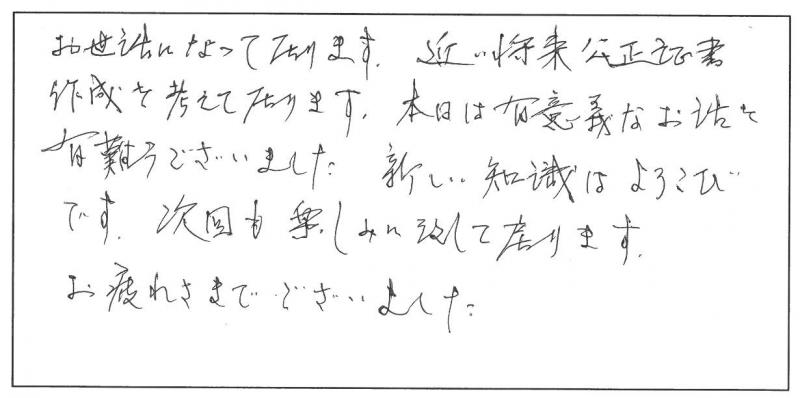 お世話になって居ります. 近い将来公正証書
作成を考えて居ります. 本日は有意義なお話を
有難うございました. 新しい知識はよろこび
です. 次回も楽しみに致して居ります.
お疲れさまでございました.